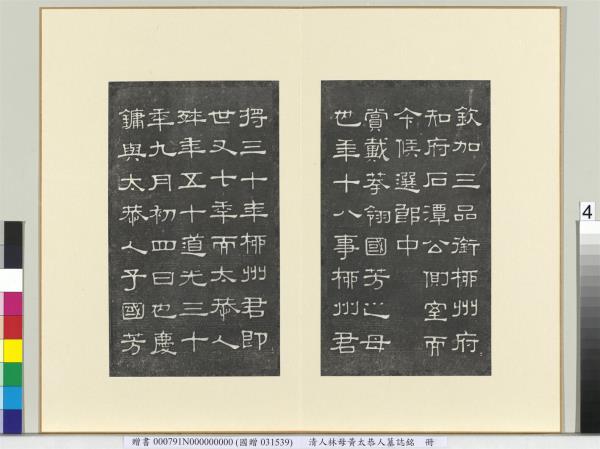 欽加三品銜柳州府
知府石潭公側室而
今候選郎中
賞戴翎國芳之母
也年十八事柳州君
得三十年柳州君即
世又七年而太恭人
歾年五十道光三十
年九月初四日也慶
鏞與太恭人子國芳
4
贈書 000791N000000000 (國贈 031539) 清人林母黃太恭人墓誌銘 冊